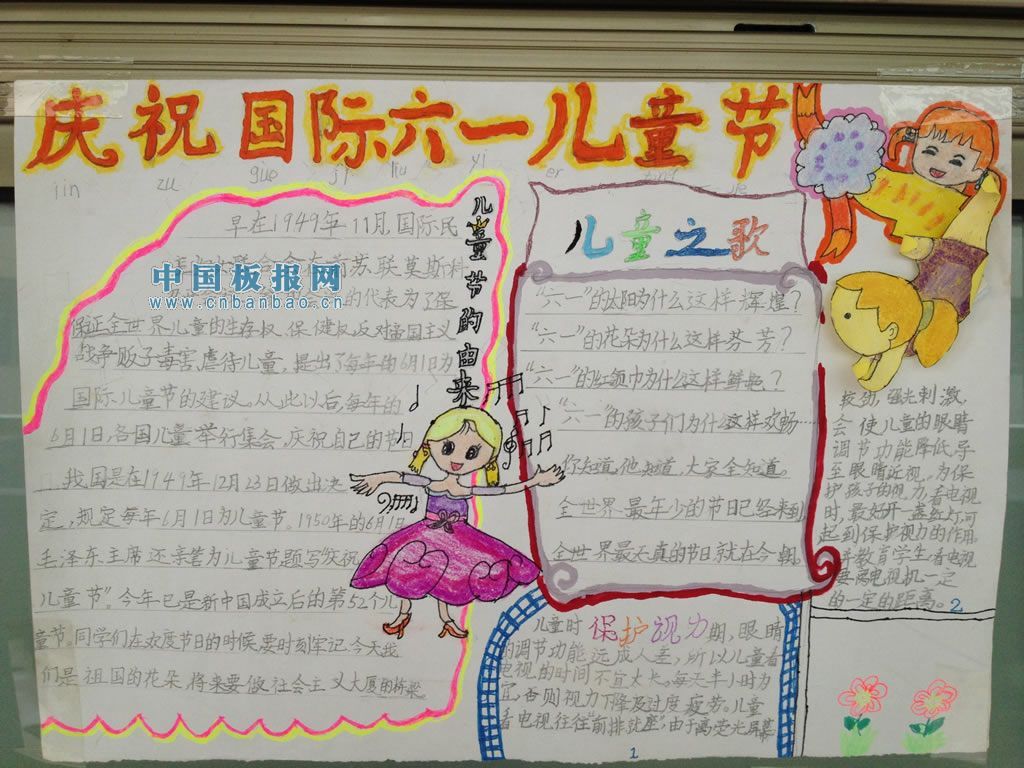 庆祝国际六一儿童节
jin zu guo ji liu yi er jie
儿童节的由来
早在1949年11月,国际民
苏联莫斯科
中国板报网
www.cnbanbao.cn
的代表为了保
保证全世界儿童的生存权、保健权,反对帝国主义
战争贩子毒害虐待儿童,提出了每年的6月1日为
国际儿童节的建议。从此以后,每年的
6月1日,各国儿童举行集会,庆祝自己的节日
我国是在1949年12月23日做出决
定,规定每年6月1日为儿童节。1950年的6月1日
毛泽东主席还亲笔为儿童节题写“庆祝
儿童节”。今年已是新中国成立后的第52个儿
童节。同学们在欢度节日的时候,要时刻牢记,今天我
们是祖国的花朵,将来要做社会主义大厦的桥梁
儿童之歌
“六一”的太阳为什么这样辉煌?
“六一”的花朵为什么这样芬芳?
“六一”的红领巾为什么这样鲜艳?
“六一”的孩子们为什么这样欢畅……
你知道,他知道,大家全知道。
全世界最年少的节日已经来到
全世界最天真的节日就在今朝
儿童时保护视力期,眼睛
的调节功能远成人差,所以儿童看
电视的时间不宜太长,每天半小时为
宜,否则视力下降及过度疲劳。儿童
看电视往往“前排就座”,由于离荧光屏幕
1
较劲,强光刺激,
会使儿童的眼睛
调节功能降低,导
至眼睛近视。为保
护孩子的视力,看电视
时,最好开一盏红灯,可
起到保护视力的作用,
并教育学生,看电视
要离电视机一定
的一定的距离。2